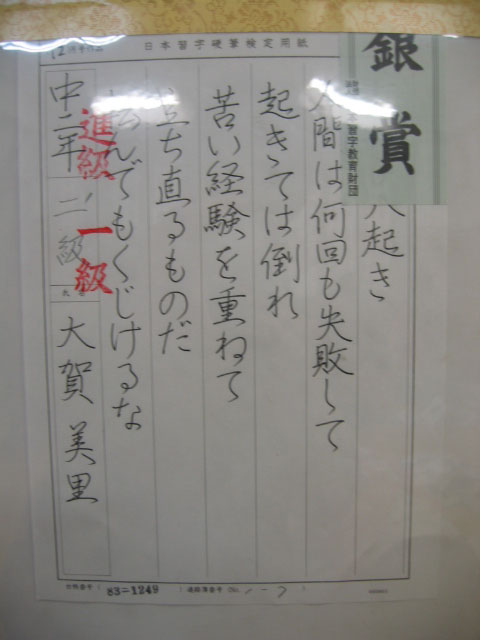 日本習字硬筆検定用紙
銀賞
日本習字教育財団
八起き
人間は何回も失敗して
起きては倒れ
苦い経験を重ねて
立ち直るものだ
転んでもくじけるな
進級 一級
中二年 二級
大賀美里
83=1249